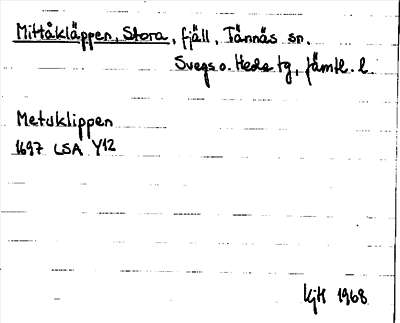 Mittåkläppen, Stora, fjäll, Tännäs sn.
Svegs o. Hede tg, Jämtl. l.
Metuklippen
1697 LSA Y12
KjH 1968